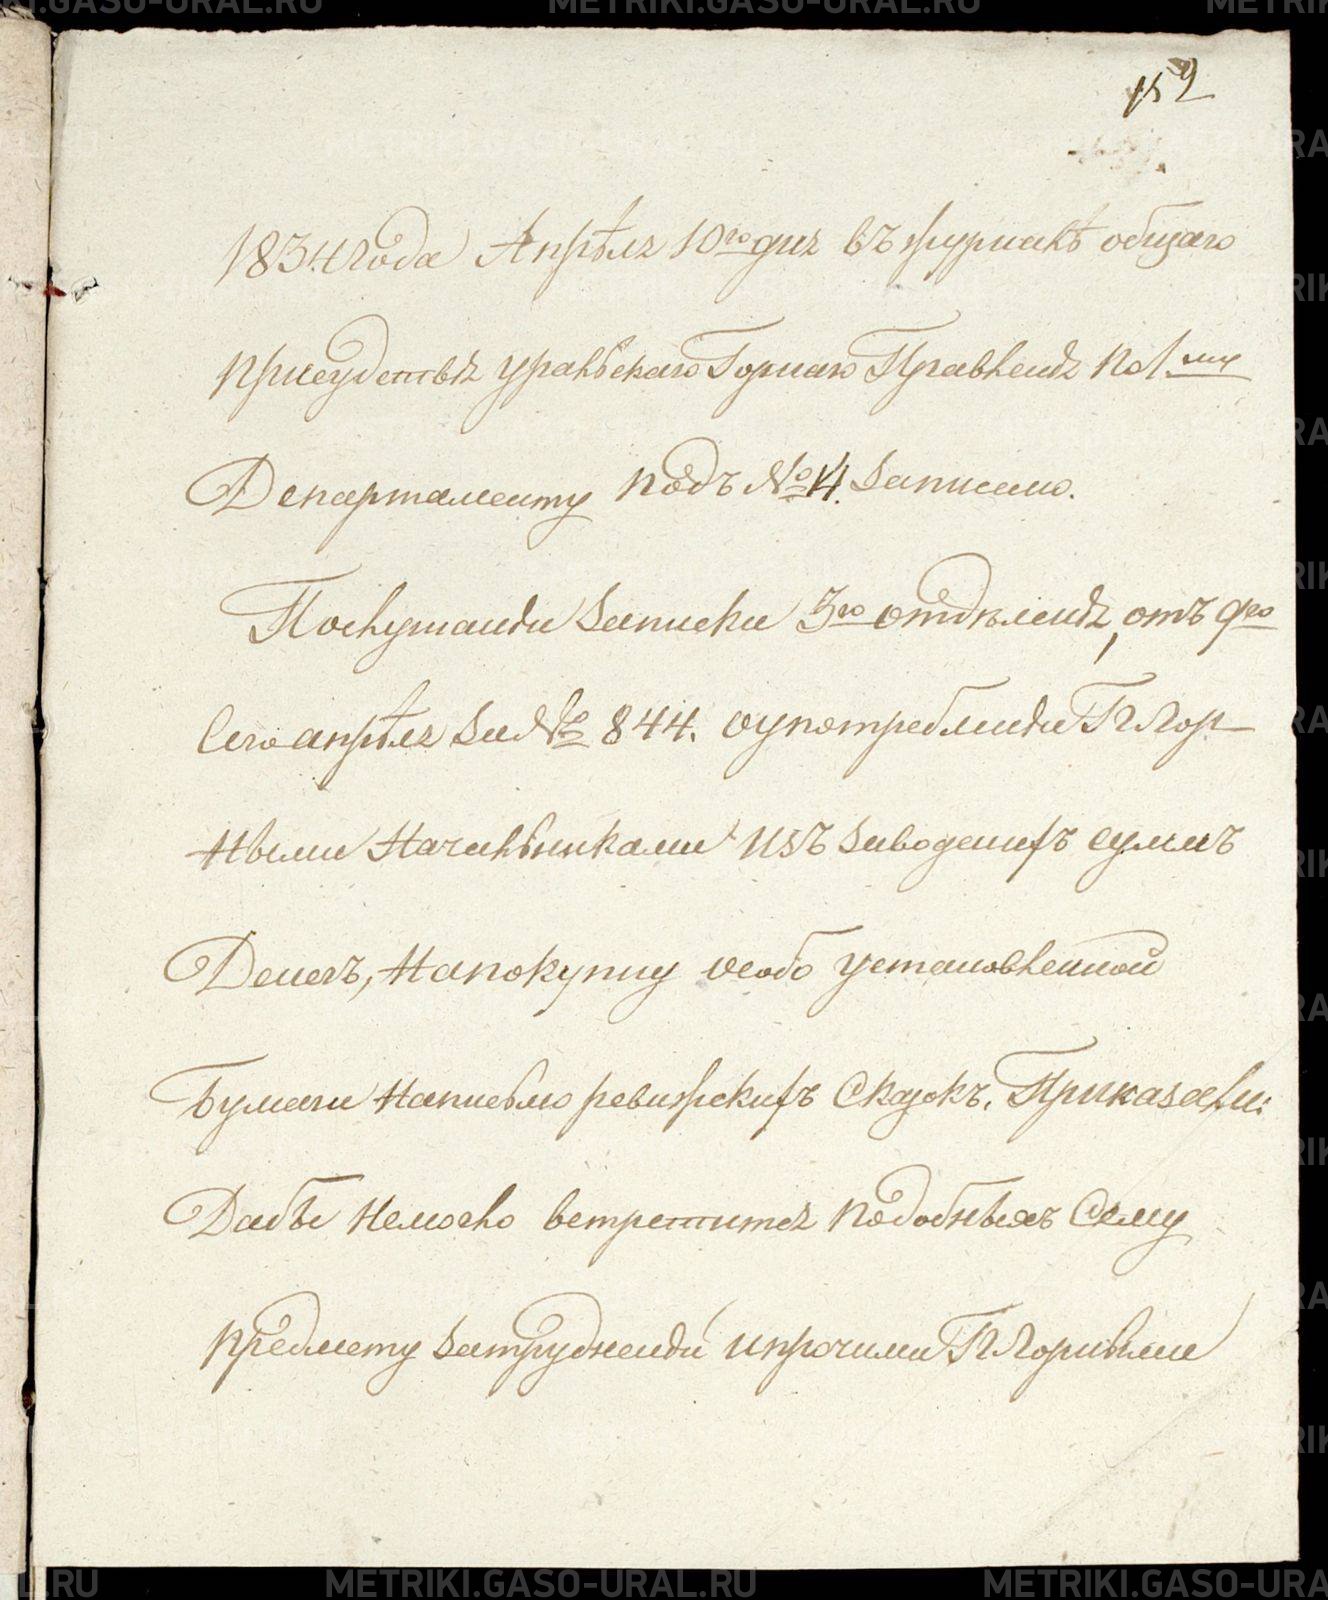 159
1834 года Апрѣля 10го дня въ журналѣ общаго
присудствія уральскаго Горнаго Правленія по 1му
Департаменту подъ № 14. записано.
Послушанiи записки 3го отдѣленія, отъ 9го
сего апрѣля за № 844. о употребленіи ГГ Гор-
ными Начальниками изъ заводскихъ суммъ
Денегъ, на покупку особо установленной
Бумаги на письмо ревизскихъ сказокъ. Приказали:
Дабы немогло встретится подобныхъ Сему
предмету затрудненій и прочими ГГ Горными
METRIKI.GASO-URAL.RU